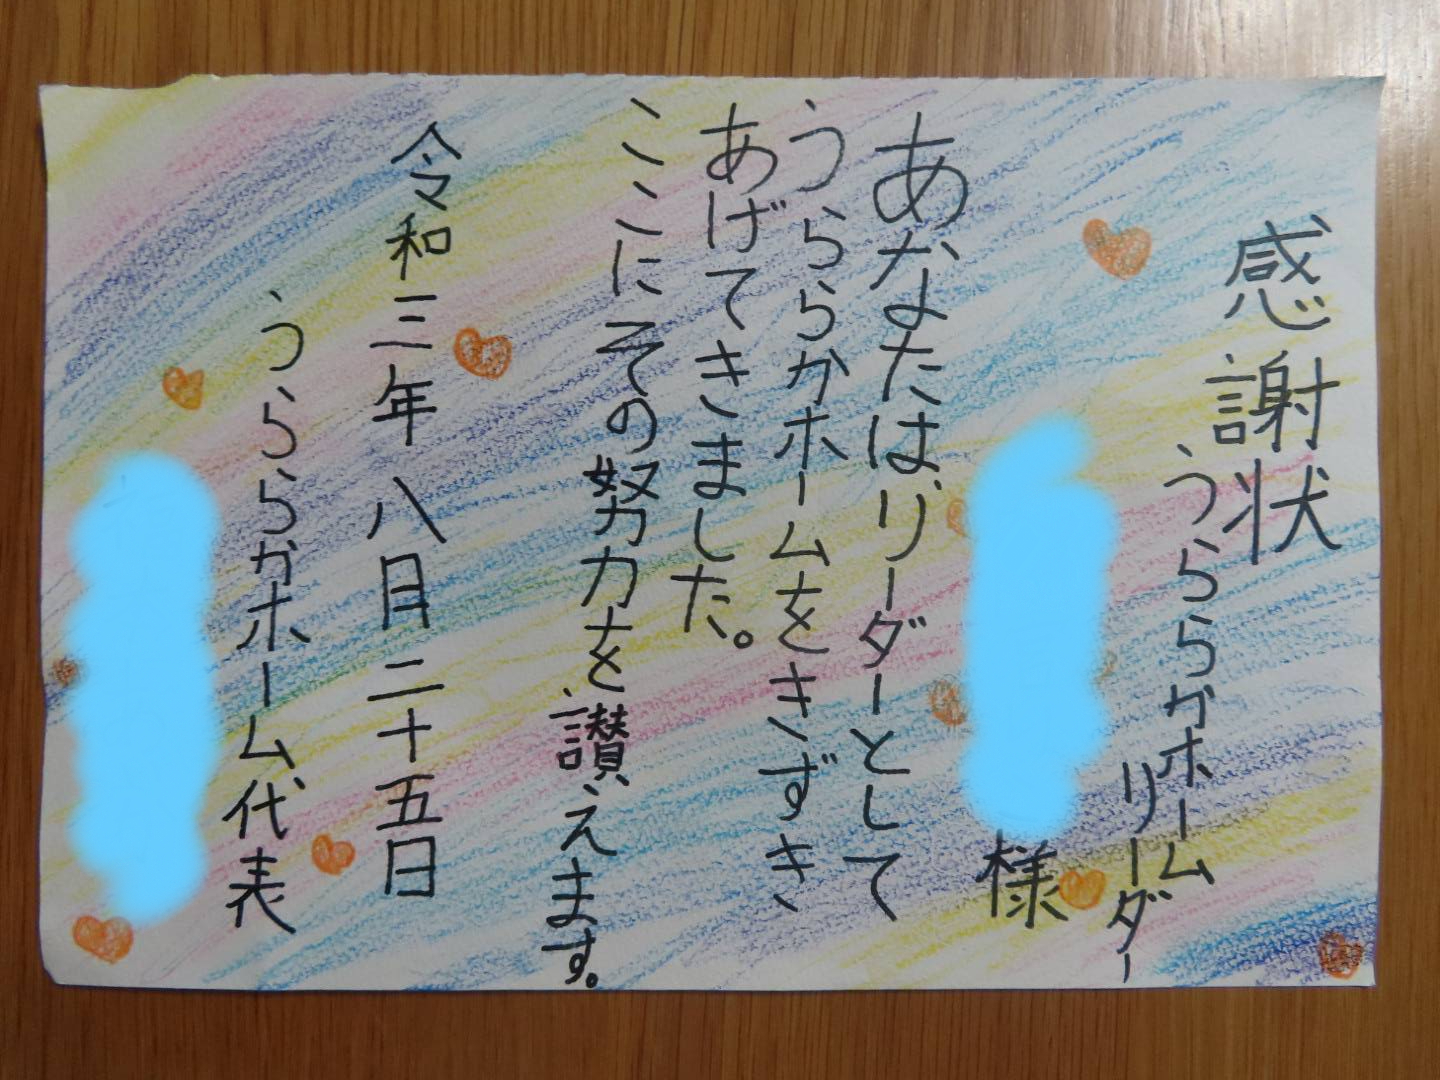 感謝状
うららかホーム
リーダー
様
あなたはリーダーとして
うららかホームをきずき
あげてきました。
ここにその努力を讃えます。
令和三年八月二十五日
うららかホーム代表